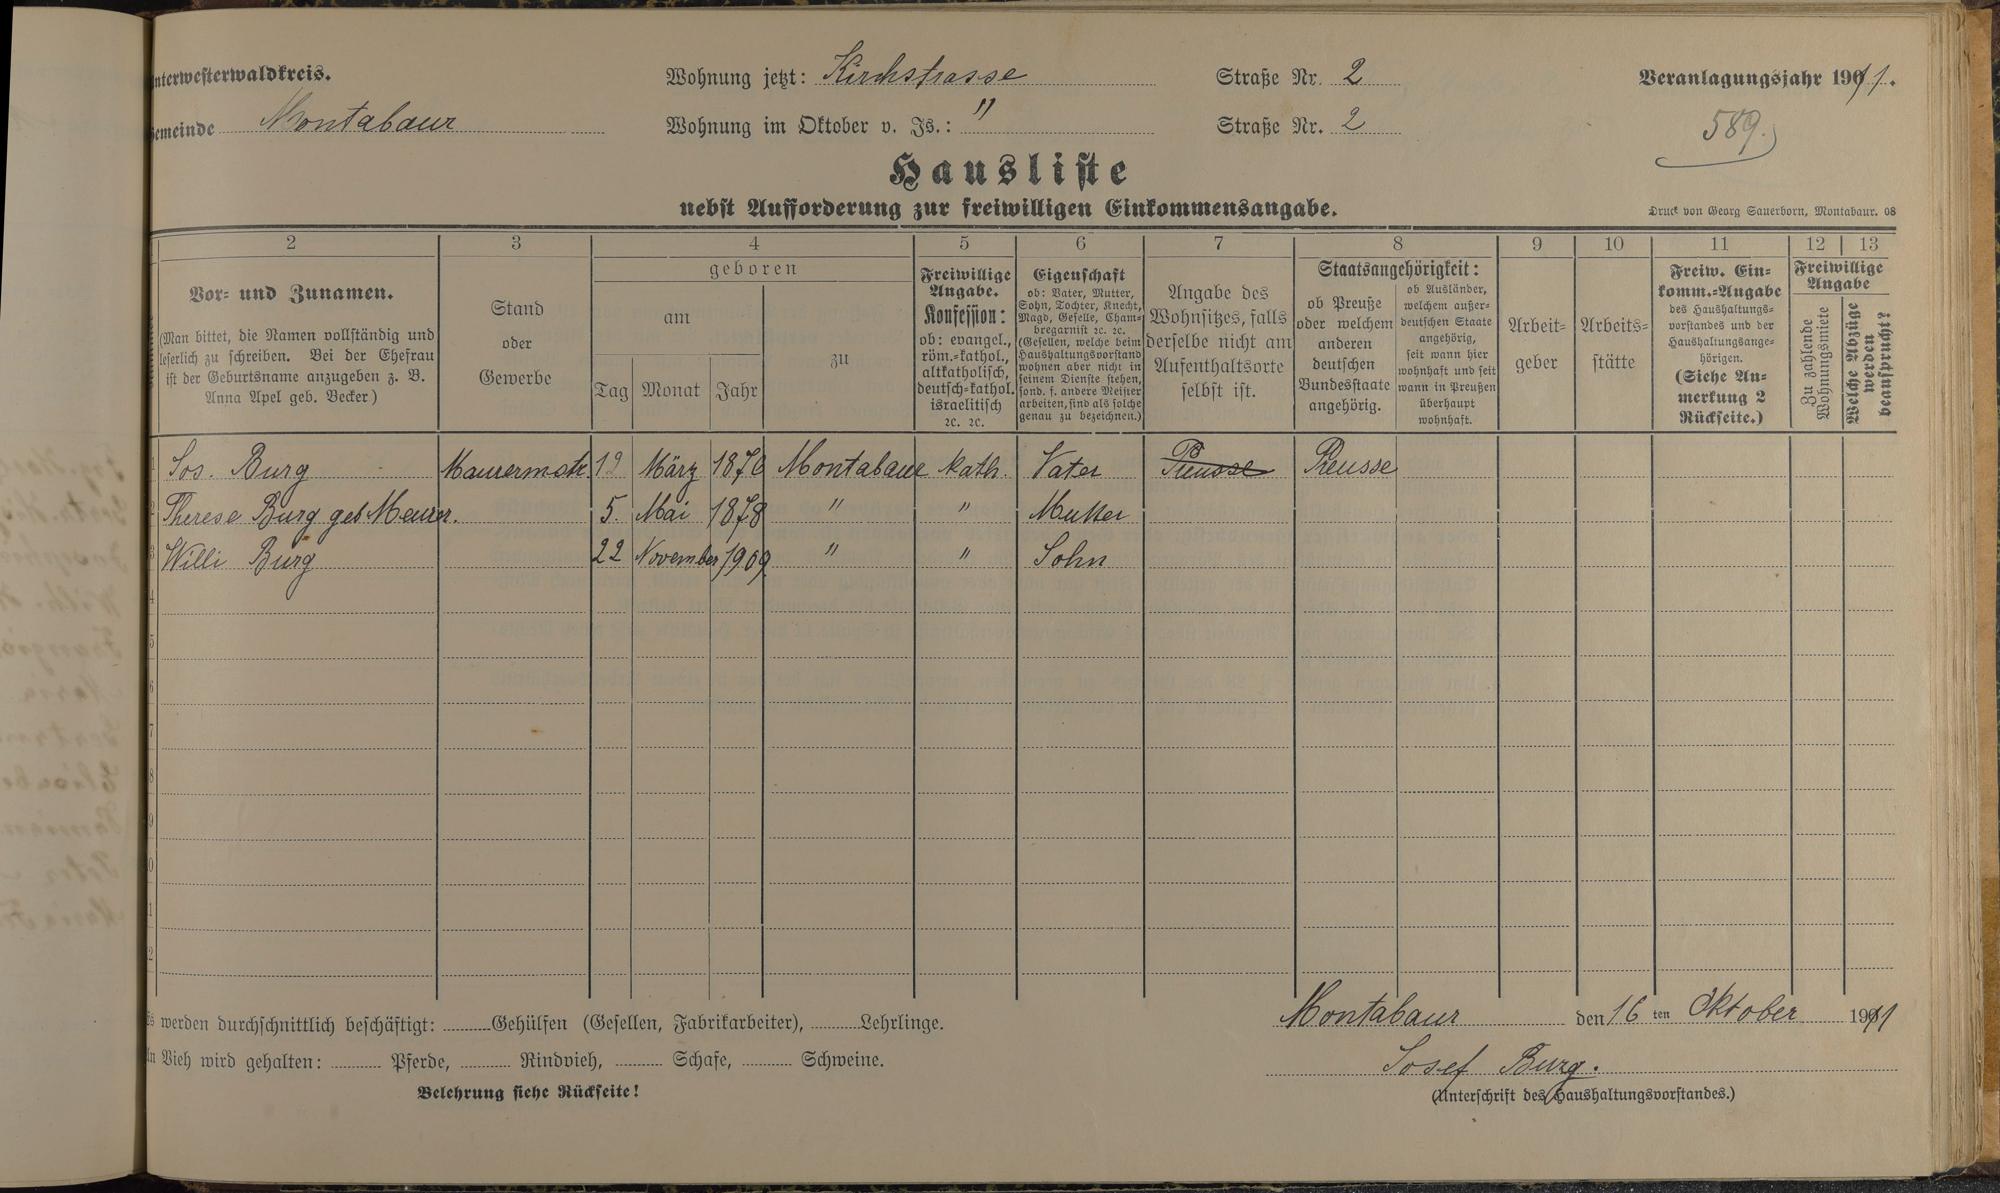 Unterwesterwaldkreis.
Gemeinde Montabaur
Wohnung jetzt: Kirchstrasse Straße Nr. 2
Wohnung im Oktober v. Js.: " Straße Nr. 2
Veranlagungsjahr 1911.
589.
Hausliste
nebst Aufforderung zur freiwilligen Einkommensangabe.
Druck von Georg Sauerborn, Montabaur. 08
2 3 4 5 6 7 8 9 10 11 12 13
Vor- und Zunamen.
(Man bittet, die Namen vollständig und
leserlich zu schreiben. Bei der Ehefrau
ist der Geburtsname anzugeben z. B.
Anna Apel geb. Becker)
Stand
oder
Gewerbe
geboren
am
Tag Monat Jahr
zu
Freiwillige
Angabe.
Konfession:
ob: evangel.,
röm.-kathol.,
altkatholisch,
deutsch-kathol.
israelitisch
2c. 2c.
Eigenschaft
ob: Vater, Mutter,
Sohn, Tochter, Knecht,
Magd, Geselle, Cham-
bregarnist 2c. 2c.
(Gesellen, welche beim
Haushaltungsvorstand
wohnen aber nicht in
seinem Dienste stehen,
sond. f. andere Meister
arbeiten, sind als solche
genau zu bezeichnen.)
Angabe des
Wohnsitzes, falls
derselbe nicht am
Aufenthaltsorte
selbst ist.
Staatsangehörigkeit:
ob Preuße
oder welchem
anderen
deutschen
Bundesstaate
angehörig.
ob Ausländer,
welchem außer-
deutschen Staate
angehörig,
seit wann hier
wohnhaft und seit
wann in Preußen
überhaupt
wohnhaft.
Arbeit-
geber
Arbeits-
stätte
Freiw. Ein-
komm.-Angabe
des Haushaltungs-
vorstandes und der
Haushaltungsange-
hörigen.
(Siehe An-
merkung 2
Rückseite.)
Freiwillige
Angabe
Zu zahlende
Wohnungsmiete
Welche Abzüge
werden
beansprucht?
1 Jos. Burg Maurermstr. 12 März 1876 Montabaur kath. Vater Preusse Preusse
2 Therese Burg geb Meurer. 5. Mai 1878 " " Mutter
3 Willi Burg 22 November 1909 " " Sohn
4
5
6
7
8
9
10
11
12
Es werden durchschnittlich beschäftigt: Gehülfen (Gesellen, Fabrikarbeiter), Lehrlinge.
An Vieh wird gehalten: Pferde, Rindvieh, Schafe, Schweine.
Belehrung siehe Rückseite!
Montabaur den 16 ten Oktober 1911
Josef Burg.
(Unterschrift des Haushaltungsvorstandes.)